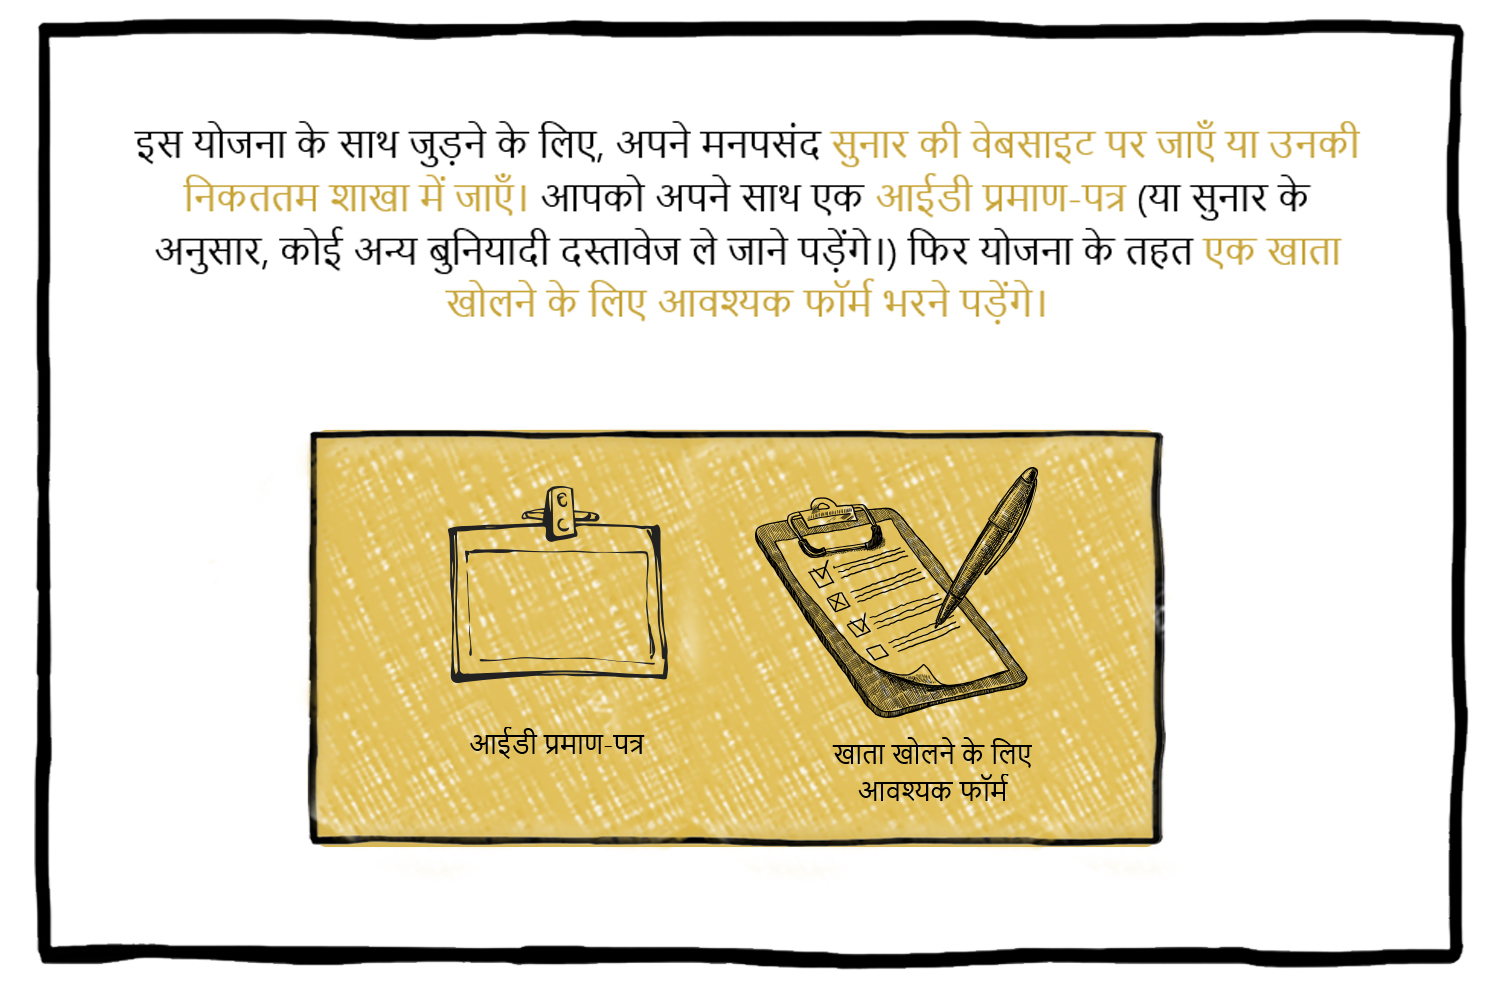 इस योजना के साथ जुड़ने के लिए, अपने मनपसंद सुनार की वेबसाइट पर जाएँ या उनकी
निकततम शाखा में जाएँ। आपको अपने साथ एक आईडी प्रमाण-पत्र (या सुनार के
अनुसार, कोई अन्य बुनियादी दस्तावेज ले जाने पड़ेंगे।) फिर योजना के तहत एक खाता
खोलने के लिए आवश्यक फॉर्म भरने पड़ेंगे।
आईडी प्रमाण-पत्र
खाता खोलने के लिए
आवश्यक फॉर्म